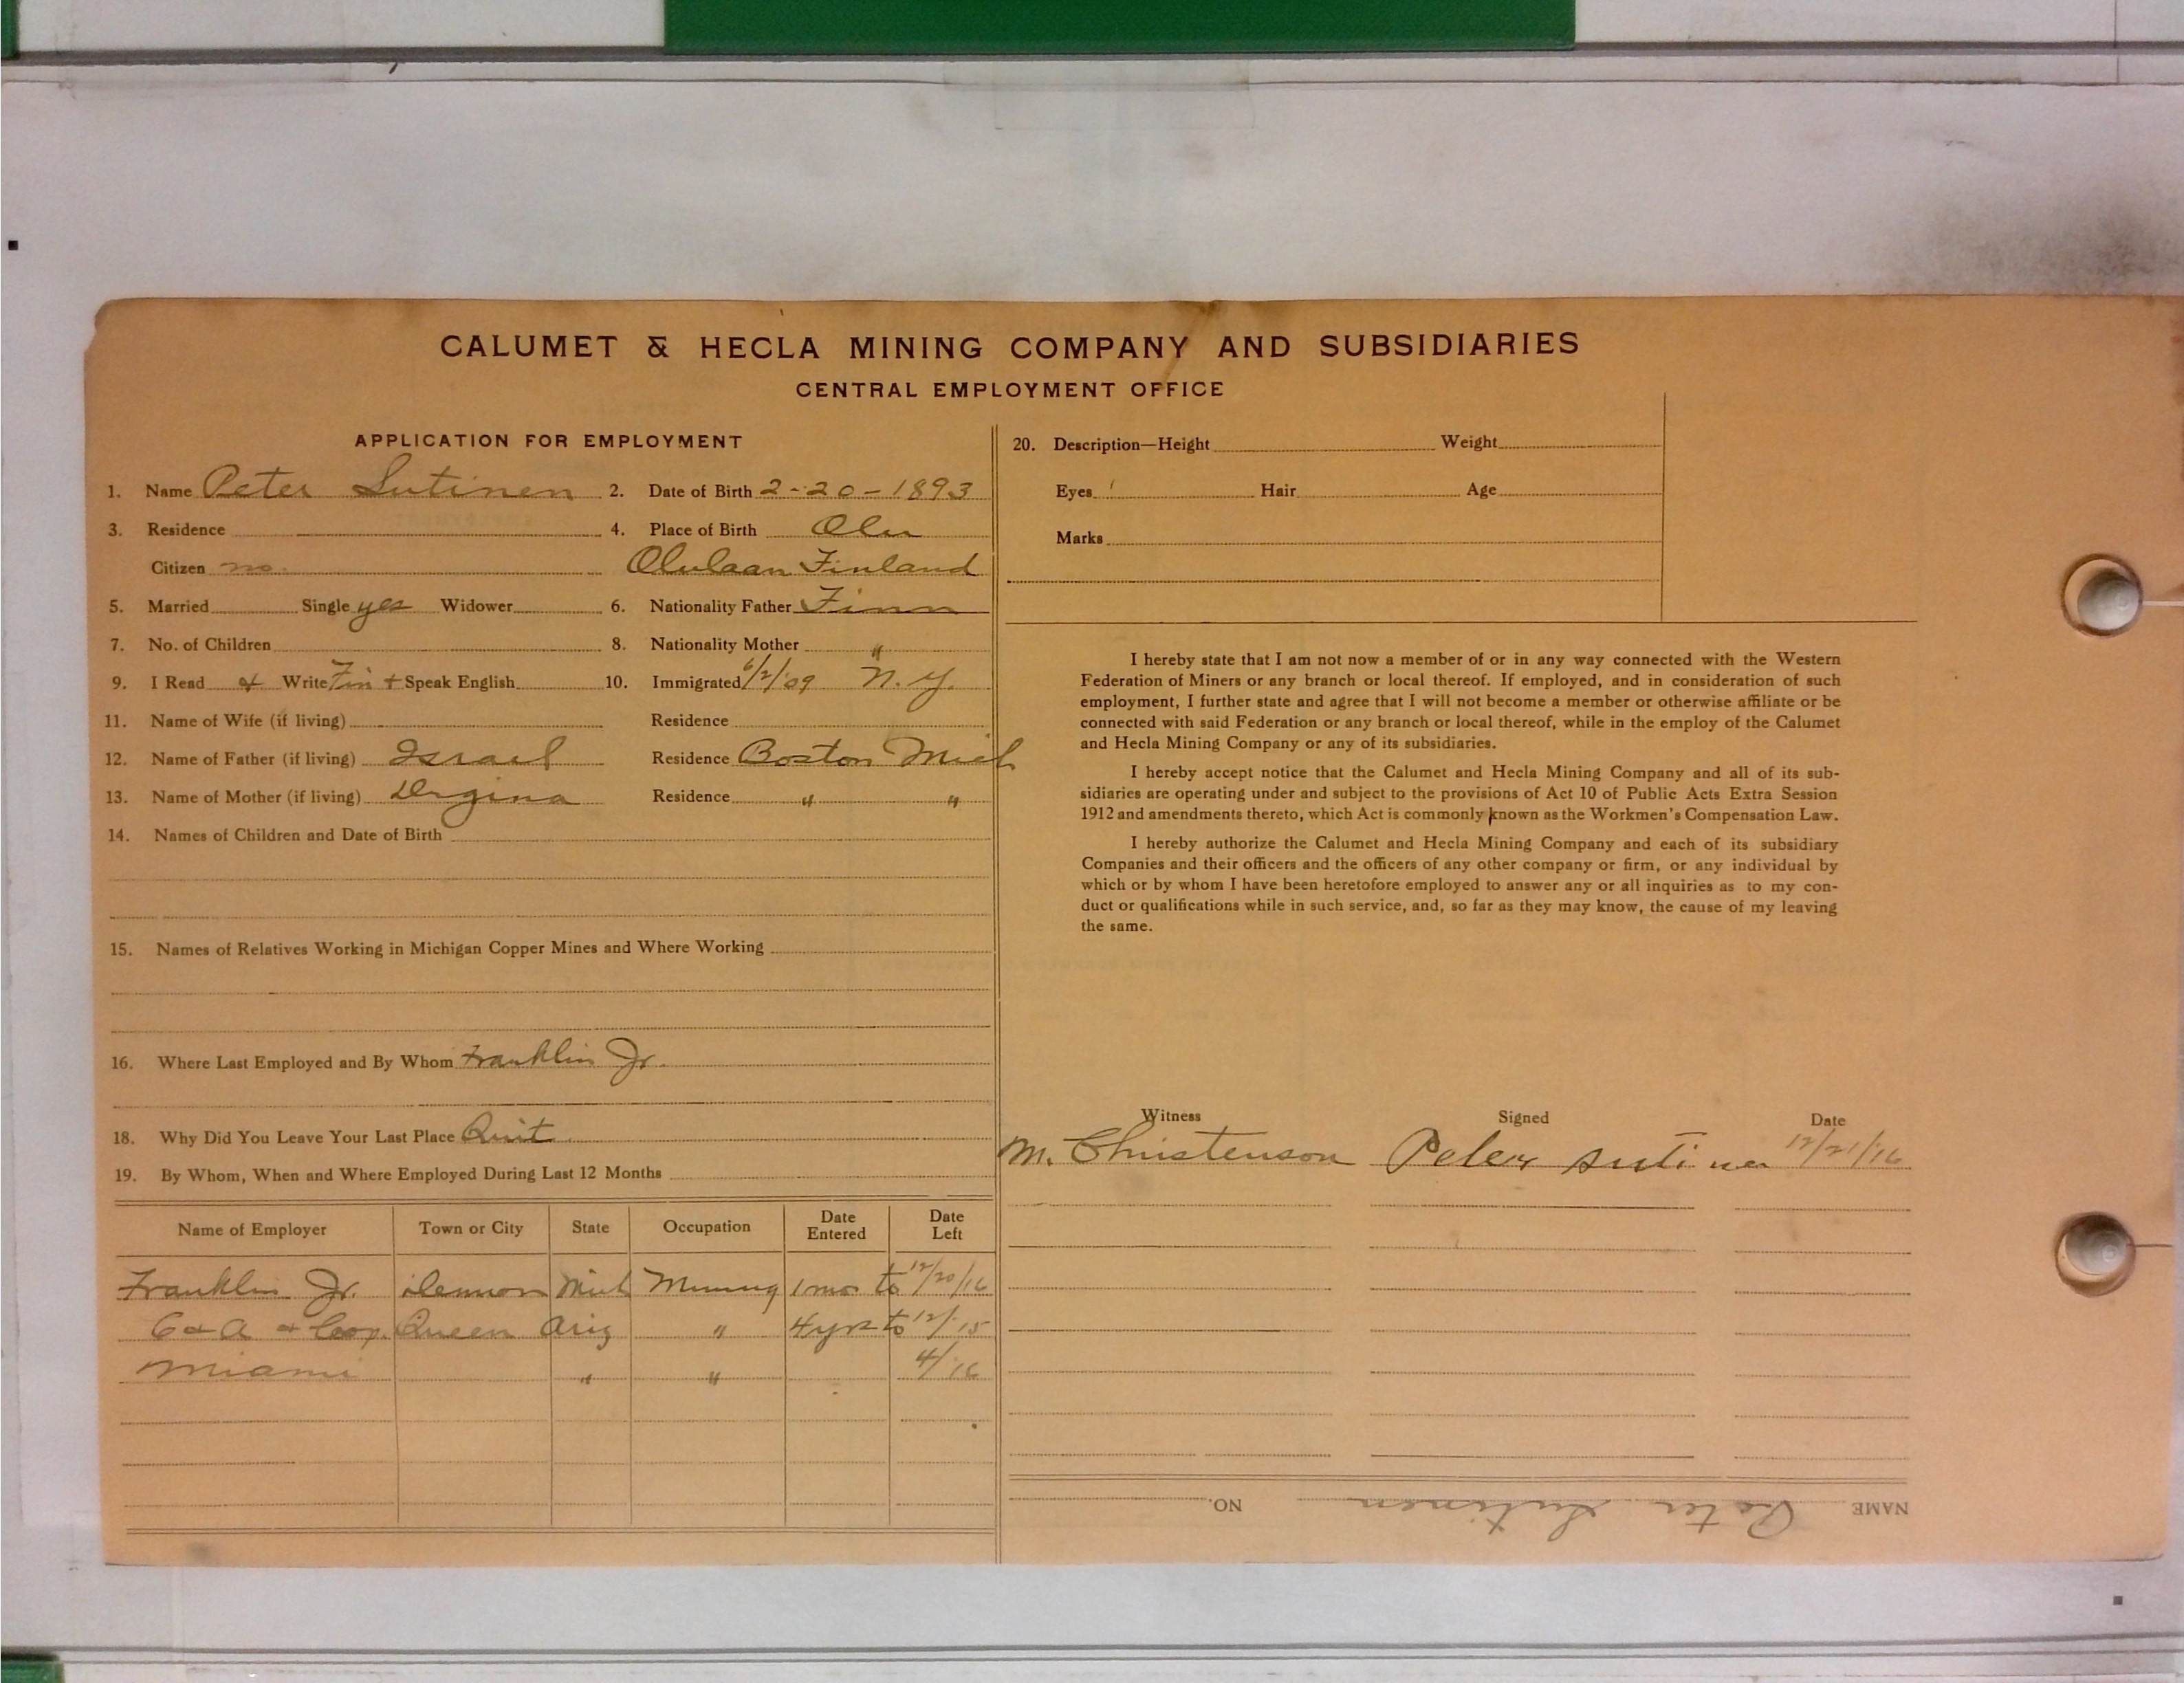 CALUMET & HECLA MINING COMPANY AND SUBSIDIARIES
CENTRAL EMPLOYMENT OFFICE
APPLICATION FOR EMPLOYMENT
1. Name Peter Sutinen 2. Date of Birth 2-20-1893
3. Residence 4. Place of Birth Olu
Citizen no. Olulaan Finland
5. Married Single yes Widower 6. Nationality Father Finn
7. No. of Children 8. Nationality Mother "
9. I Read & Write Fin + Speak English 10. Immigrated 6/2/09 N.Y.
11. Name of Wife (if living) Residence
12. Name of Father (if living) Israel Residence Boston Mich
13. Name of Mother (if living) Residence " "
14. Names of Children and Date of Birth
15. Names of Relatives Working in Michigan Copper Mines and Where Working
16. Where Last Employed and By Whom Franklin Jr.
18. Why Did You Leave Your Last Place Quit
19. By Whom, When and Where Employed During Last 12 Months
Name of Employer Town or City State Occupation Date Entered Date Left
Franklin Jr. Mich Mining 1 mo to 12/20/16
C & A & Cop. Queen Ariz " 4 yrs to 12/15
Miami " " 4/16
20. Description—Height Weight
Eyes Hair Age
Marks
I hereby state that I am not now a member of or in any way connected with the Western
Federation of Miners or any branch or local thereof. If employed, and in consideration of such
employment, I further state and agree that I will not become a member or otherwise affiliate or be
connected with said Federation or any branch or local thereof, while in the employ of the Calumet
and Hecla Mining Company or any of its subsidiaries.
I hereby accept notice that the Calumet and Hecla Mining Company and all of its sub-
sidiaries are operating under and subject to the provisions of Act 10 of Public Acts Extra Session
1912 and amendments thereto, which Act is commonly known as the Workmen's Compensation Law.
I hereby authorize the Calumet and Hecla Mining Company and each of its subsidiary
Companies and their officers and the officers of any other company or firm, or any individual by
which or by whom I have been heretofore employed to answer any or all inquiries as to my con-
duct or qualifications while in such service, and, so far as they may know, the cause of my leaving
the same.
Witness Signed Date
M. Christenson Peter Sutinen 12/21/16
NAME Peter Sutinen NO.